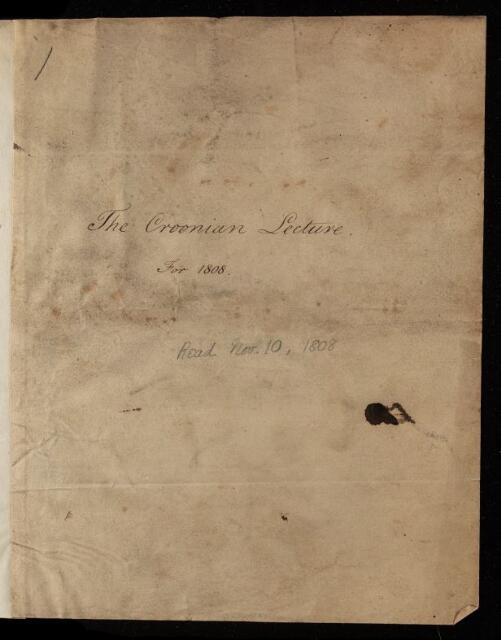 The Croonian Lecture.
For 1808.
Read Nov. 10, 1808